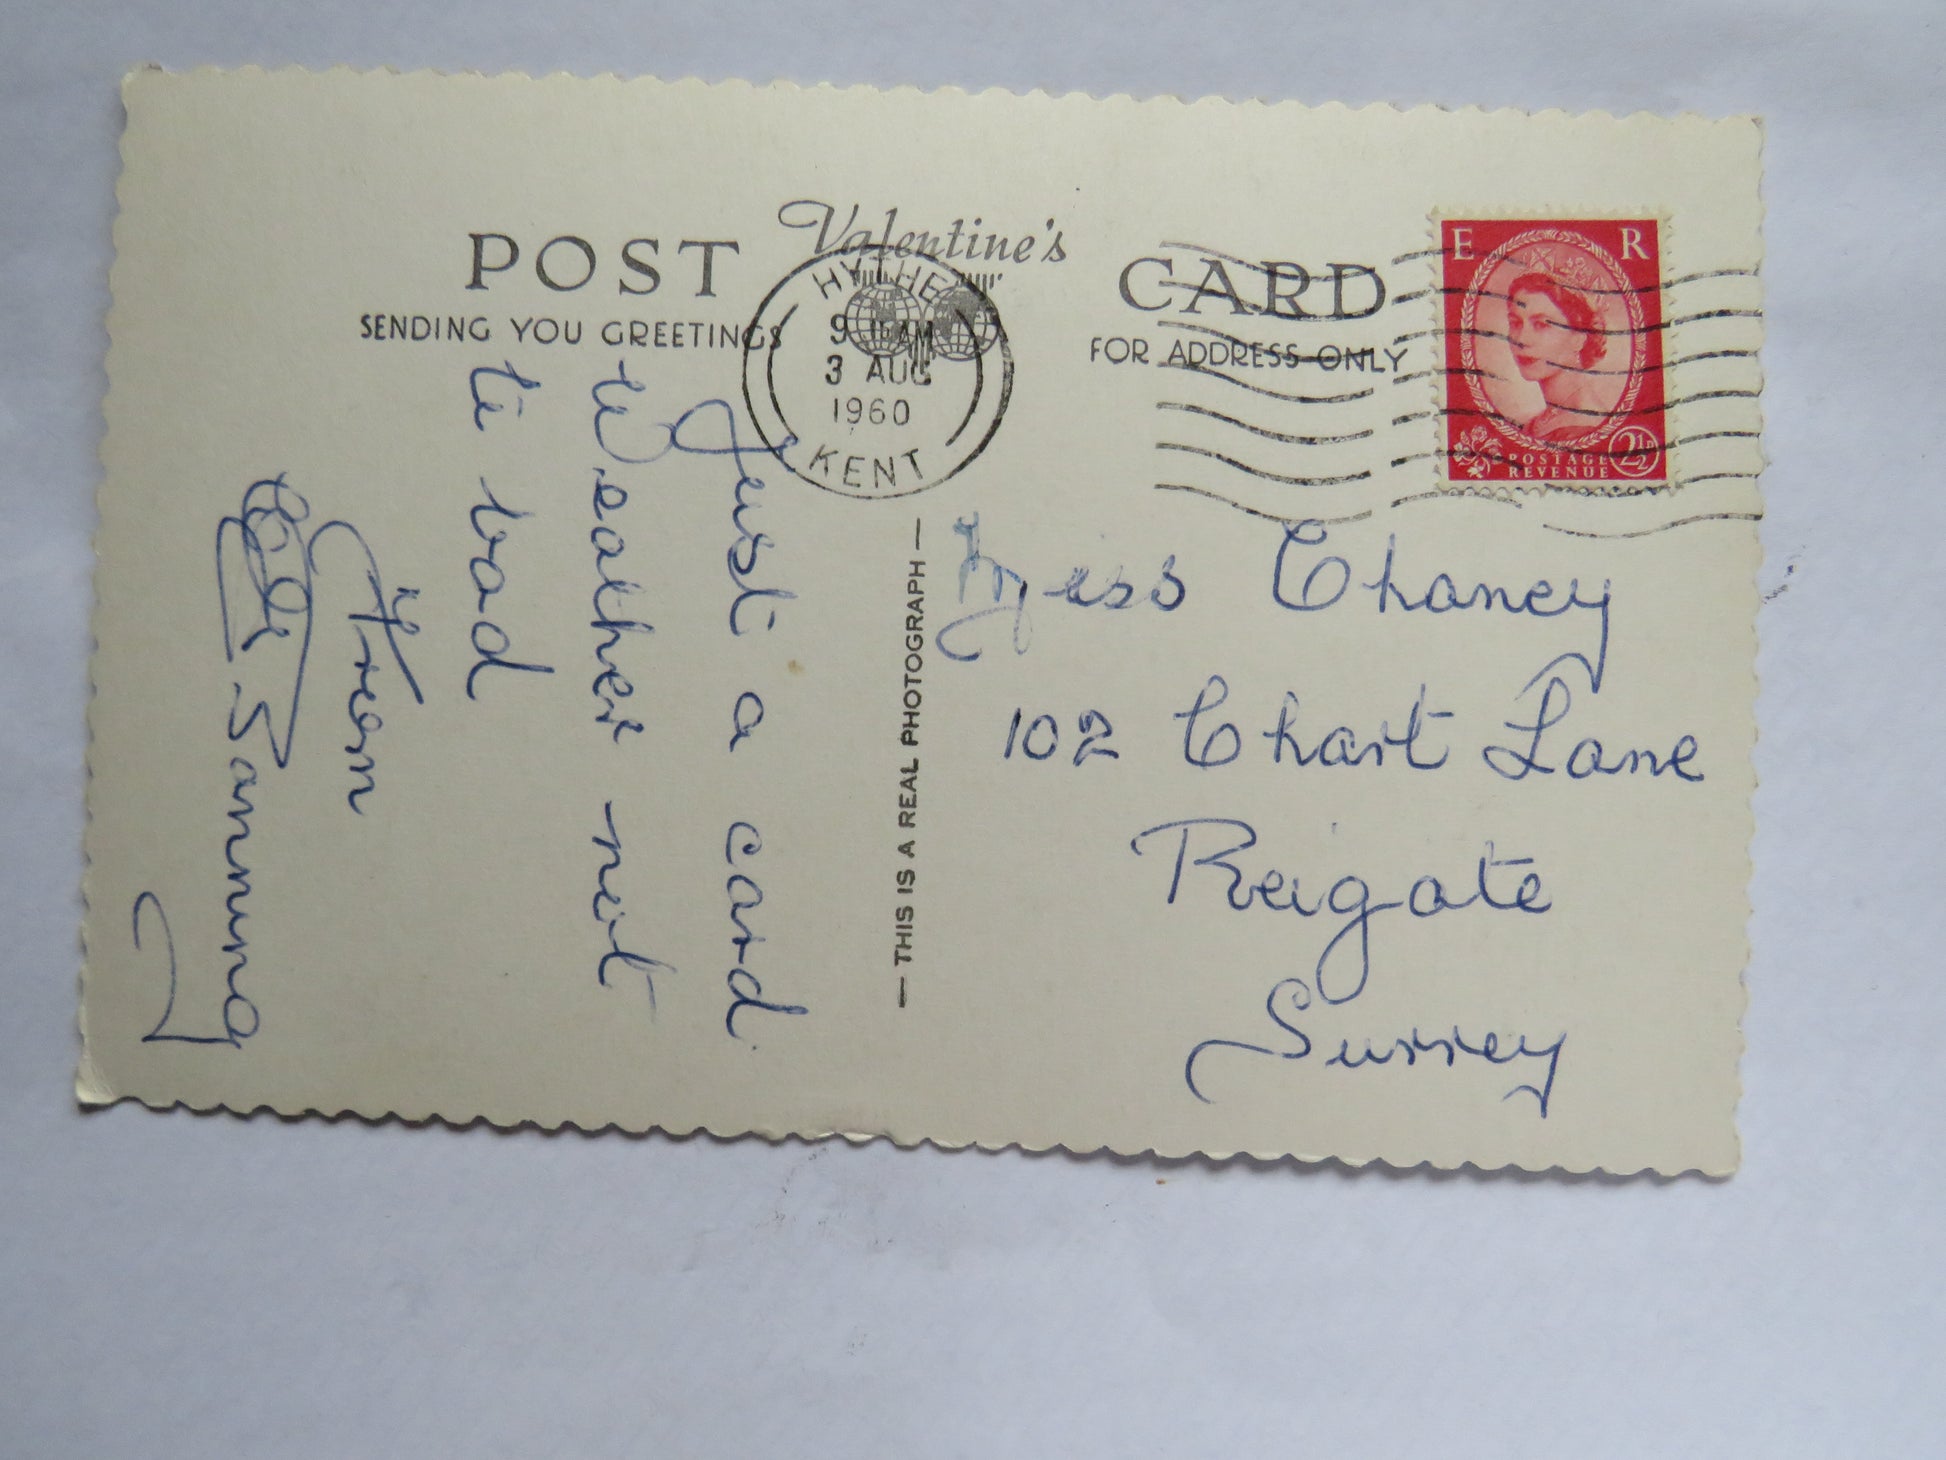 Valentine's
POST CARD
SENDING YOU GREETINGS
FOR ADDRESS ONLY
HYTHE
9 AM
3 AUG
1960
KENT
E R
POSTAGE
REVENUE
2½D
— THIS IS A REAL PHOTOGRAPH —
Just a card
Weather not
to bad
From
Miss Chaney
102 Chart Lane
Reigate
Surrey